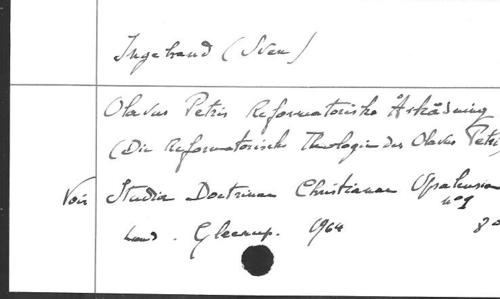 Ingebrand (Sven)
Olavus Petris Reformatoriska Åskådning
(Die Reformatorische Theologie des Olavus Petri)
Voir Studia Doctrinae Christianae Upsaliensia
n° 1
Lund. Gleerup. 1964 8°